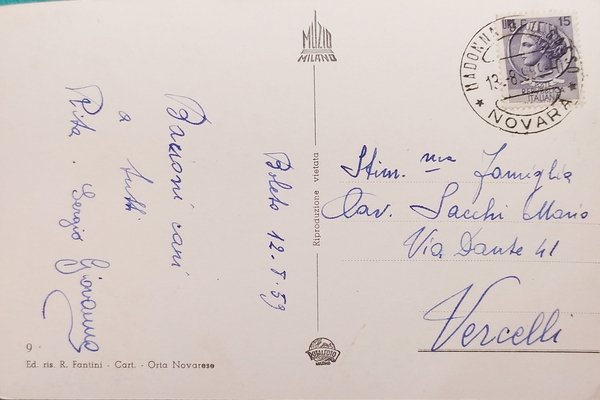 Boleto 12.8.59
Bacioni cari
a tutti
Rita. Sergio Giovanna
9
Ed. ris. R. Fantini - Cart. - Orta Novarese
MUZIO
MILANO
Riproduzione vietata
LIRE 15
ITALIANA
MADONNA DEL
13.-8.
NOVARA
Stim.ma Famiglia
Cav. Sacchi Mario
Via Dante 41
Vercelli